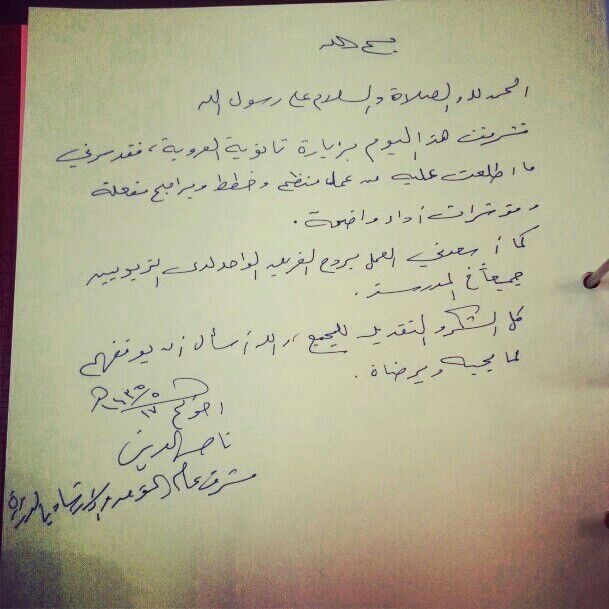 بسم الله
الحمد لله والصلاة والسلام على رسول الله
تشرفت هذا اليوم بزيارة ثانوية العروبة، فقد سرني
ما اطلعت عليه من عمل منظم وخطط وبرامج مفعلة
ومؤشرات أداء واضحة.
كما أسعدني العمل بروح الفريق الواحد لدى التربويين
جميعاً في المدرسة.
كل الشكر والتقدير للجميع والله أسأل أن يوفقهم
لما يحبه ويرضاه.
أخوكم
ناصر
مشرف عام التوعية الإسلامية بالوزارة